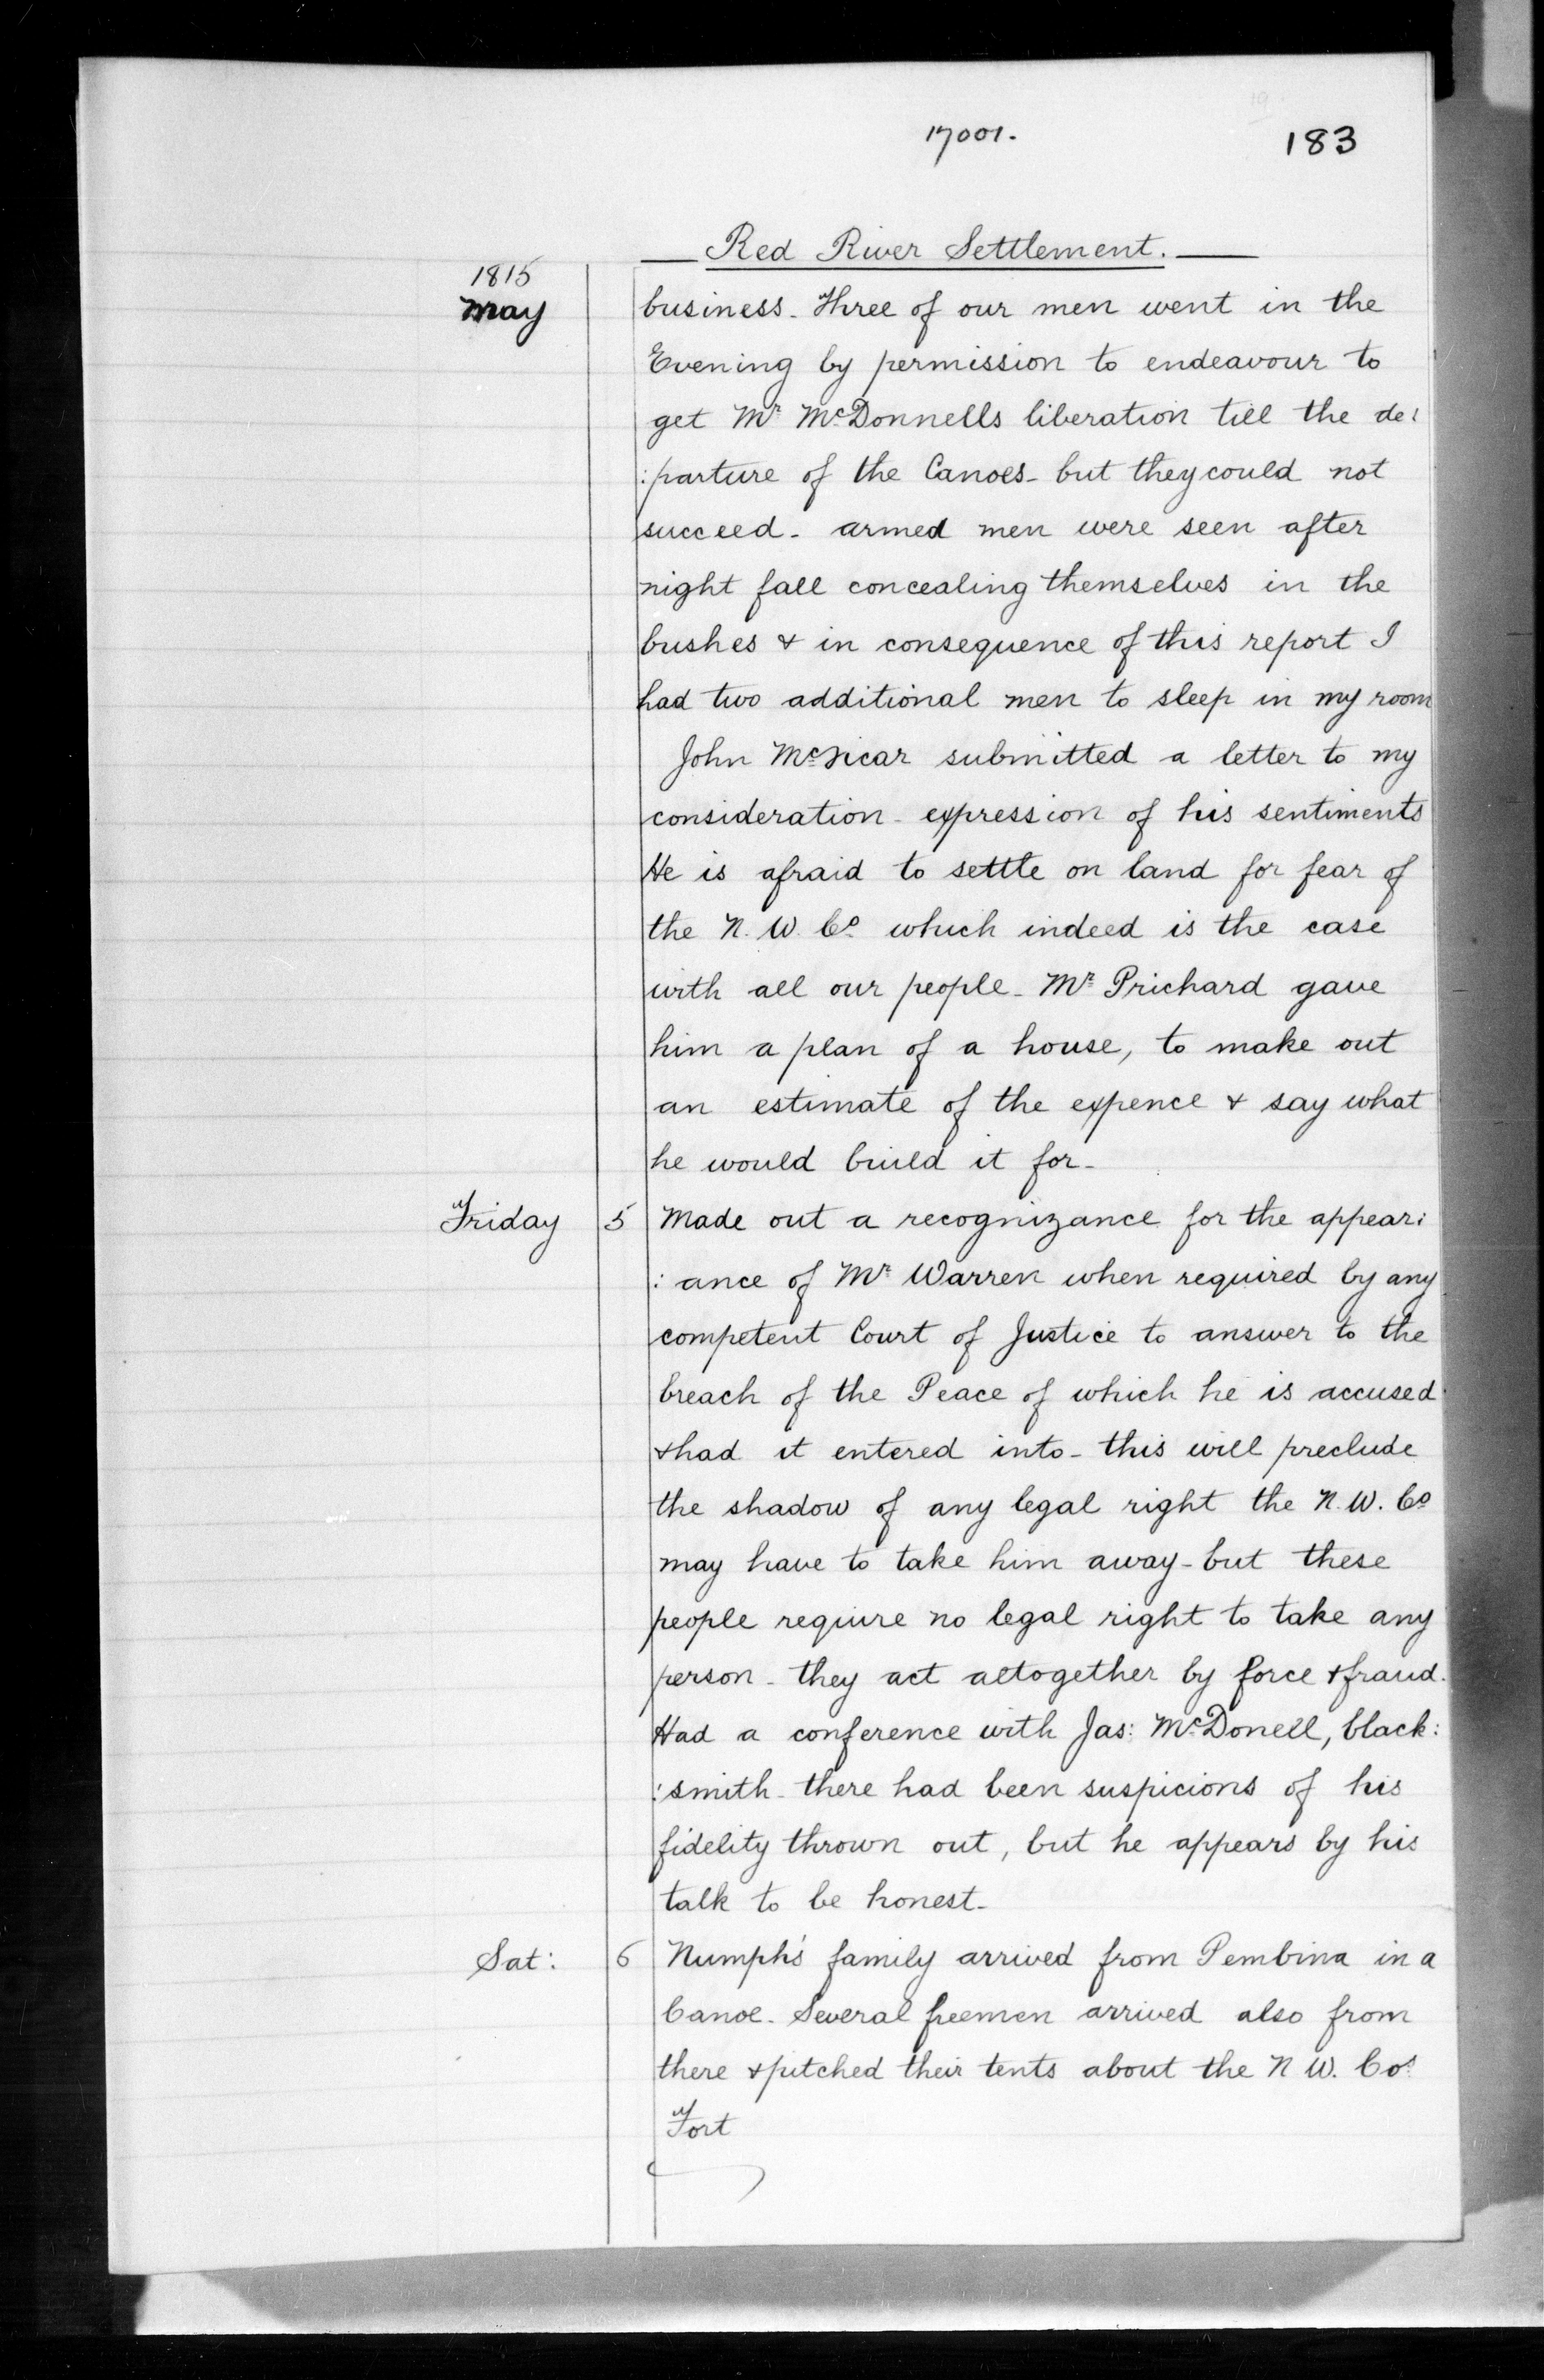 17001.
183
Red River Settlement.
1815
May
business. Three of our men went in the
Evening by permission to endeavour to
get Mr McDonnells liberation till the de:
:parture of the Canoes - but they could not
succeed - armed men were seen after
night fall concealing themselves in the
bushes & in consequence of this report I
had two additional men to sleep in my room
John McVicar submitted a letter to my
consideration - expression of his sentiments
He is afraid to settle on land for fear of
the N. W. Co which indeed is the case
with all our people - Mr Prichard gave
him a plan of a house, to make out
an estimate of the expence & say what
he would build it for -
Friday 5 Made out a recognizance for the appear:
: ance of Mr Warren when required by any
competent Court of Justice to answer to the
breach of the Peace of which he is accused
& had it entered into - this will preclude
the shadow of any legal right the N. W. Co
may have to take him away - but these
people require no legal right to take any
person - they act altogether by force & fraud.
Had a conference with Jas: McDonell, black:
:smith - there had been suspicions of his
fidelity thrown out, but he appears by his
talk to be honest -
Sat: 6 Numph's family arrived from Pembina in a
Canoe - Several freemen arrived also from
there & pitched their tents about the N W. Cos
Fort